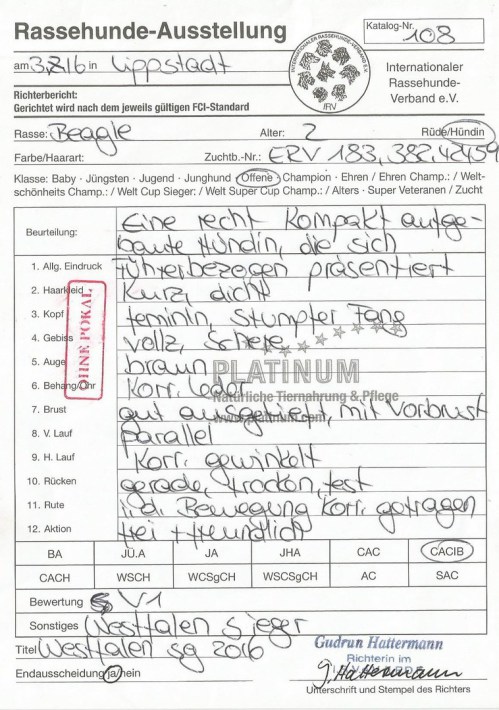 Rassehunde-Ausstellung
Katalog-Nr. 108
am 3.7.16 in Lippstadt
INTERNATIONALER RASSEHUNDE-VERBAND E.V.
IRV
Internationaler
Rassehunde-
Verband e.V.
Richterbericht:
Gerichtet wird nach dem jeweils gültigen FCI-Standard
Rasse: Beagle Alter: 2 Rüde/Hündin
Farbe/Haarart: Zuchtb.-Nr.: ERV 183,382,42,459
Klasse: Baby · Jüngsten · Jugend · Junghund · Offene · Champion · Ehren / Ehren Champ.: / Welt-
schönheits Champ.: / Welt Cup Sieger: / Welt Super Cup Champ.: / Alters · Super Veteranen / Zucht
Beurteilung: Eine recht kompakt aufge-
baute Hündin, die sich
1. Allg. Eindruck führerbezogen präsentiert
2. Haarkleid kurz, dicht
3. Kopf feminin, stumpfer Fang
4. Gebiss vollz, Schere
5. Auge braun
6. Behang/Ohr Korr. Leder
7. Brust gut ausgetieft, mit Vorbrust
8. V. Lauf parallel
9. H. Lauf Korr. gewinkelt
10. Rücken gerade, trocken, fest
11. Rute i.d. Bewegung korr. getragen
12. Aktion frei + freundlich
OHNE POKAL
PLATINUM
Natürliche Tiernahrung & Pflege
www.platinum.com
BA JÜ.A JA JHA CAC CACIB
CACH WSCH WCSgCH WSCSgCH AC SAC
Bewertung V1
Sonstiges Westfalen Sieger
Titel Westfalen Sg 2016
Gudrun Hattermann
Richterin im
Endausscheidung ja/nein G. Hattermann
Unterschrift und Stempel des Richters